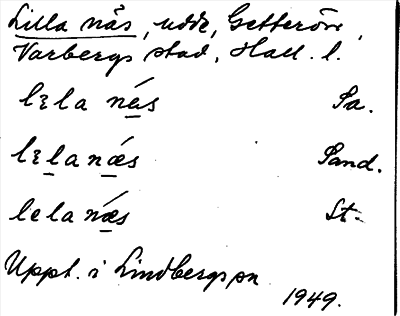 Lilla näs, udde, Getterön,
Varbergs stad, Hall. l.
lɛla nás Sa.
lɛla nǽs Sand.
lela nǽs St.
Uppt. i Lindbergs sn
1949.